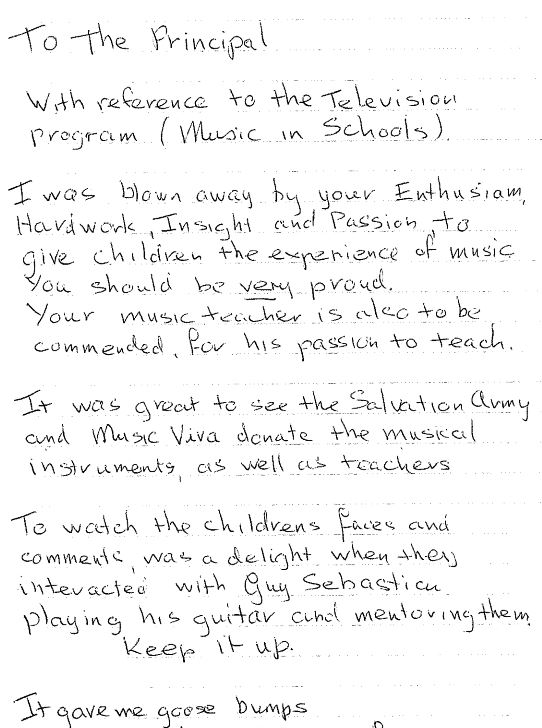 To The Principal
With reference to the Television
program (Music in Schools).
I was blown away by your Enthusiam,
Hardwork, Insight and Passion, to
give children the experience of music
You should be very proud.
Your music teacher is also to be
commended, for his passion to teach.
It was great to see the Salvation Army
and Music Viva donate the musical
instruments, as well as teachers
To watch the childrens faces and
comments, was a delight when they
interacted with Guy Sebastian
playing his guitar and mentoring them
Keep it up.
It gave me goose bumps